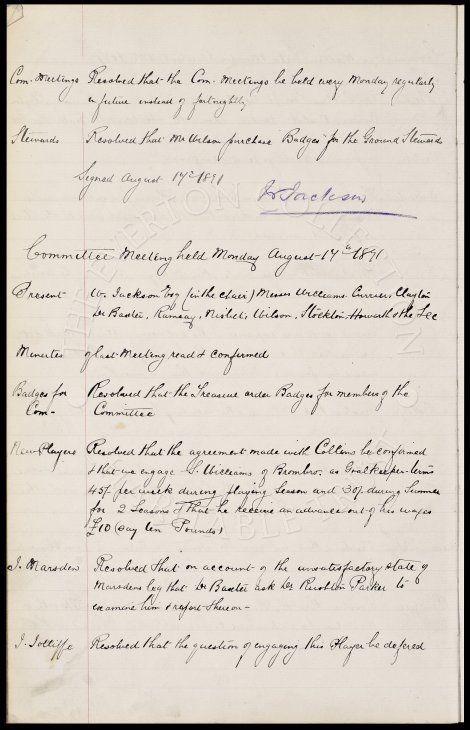 Com. Meetings Resolved that the Com. Meetings be held every Monday regularly
in future instead of fortnightly
Stewards Resolved that Mr Wilson purchase Badges for the Ground Stewards
Signed August 17th 1891
W Jackson
Committee Meeting held Monday August 17th 1891
Present W. Jackson Esq (in the chair) Messrs Williams Currier, Clayton
Dr Baxter, Ramsay, Nisbet, Wilson, Stockton, Howarth & the Sec
Minutes of last Meeting read & confirmed
Badges for Resolved that the Treasurer order Badges for members of the
Com- Committee
New Players Resolved that the agreement made with Collins be confirmed
& that we engage S. Williams of Bromboro. as Goalkeeper terms
45/- per week during playing Season and 30/- during Summer
for 2 Seasons & that he receive an advance out of his wages
£10 (say ten Pounds)
J. Marsden Resolved that on account of the unsatisfactory state of
Marsdens leg that Dr Baxter ask Dr Rushton Parker to
examine him & report thereon-
J. Jolliffe Resolved that the question of engaging this Player be defered